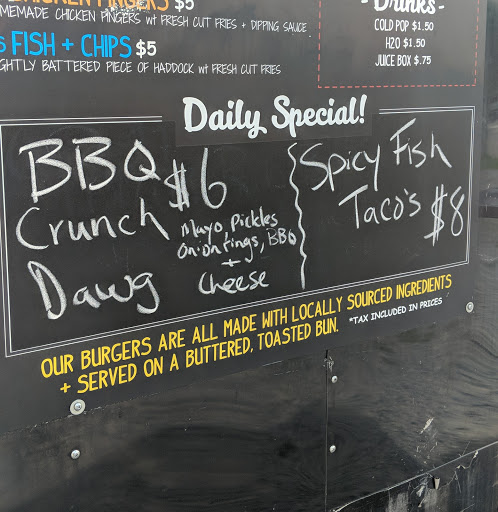 $5
MEMADE CHICKEN FINGERS wt FRESH CUT FRIES + DIPPING SAUCE
FISH + CHIPS $5
GHTLY BATTERED PIECE OF HADDOCK wt FRESH CUT FRIES
- Drinks -
COLD POP $1.50
H2O $1.50
JUICE BOX $.75
Daily Special!
BBQ $6
Crunch
Dawg
Mayo, Pickles
Onion rings, BBQ
+
Cheese
Spicy Fish
Taco's $8
OUR BURGERS ARE ALL MADE WITH LOCALLY SOURCED INGREDIENTS
+ SERVED ON A BUTTERED, TOASTED BUN.
*TAX INCLUDED IN PRICES